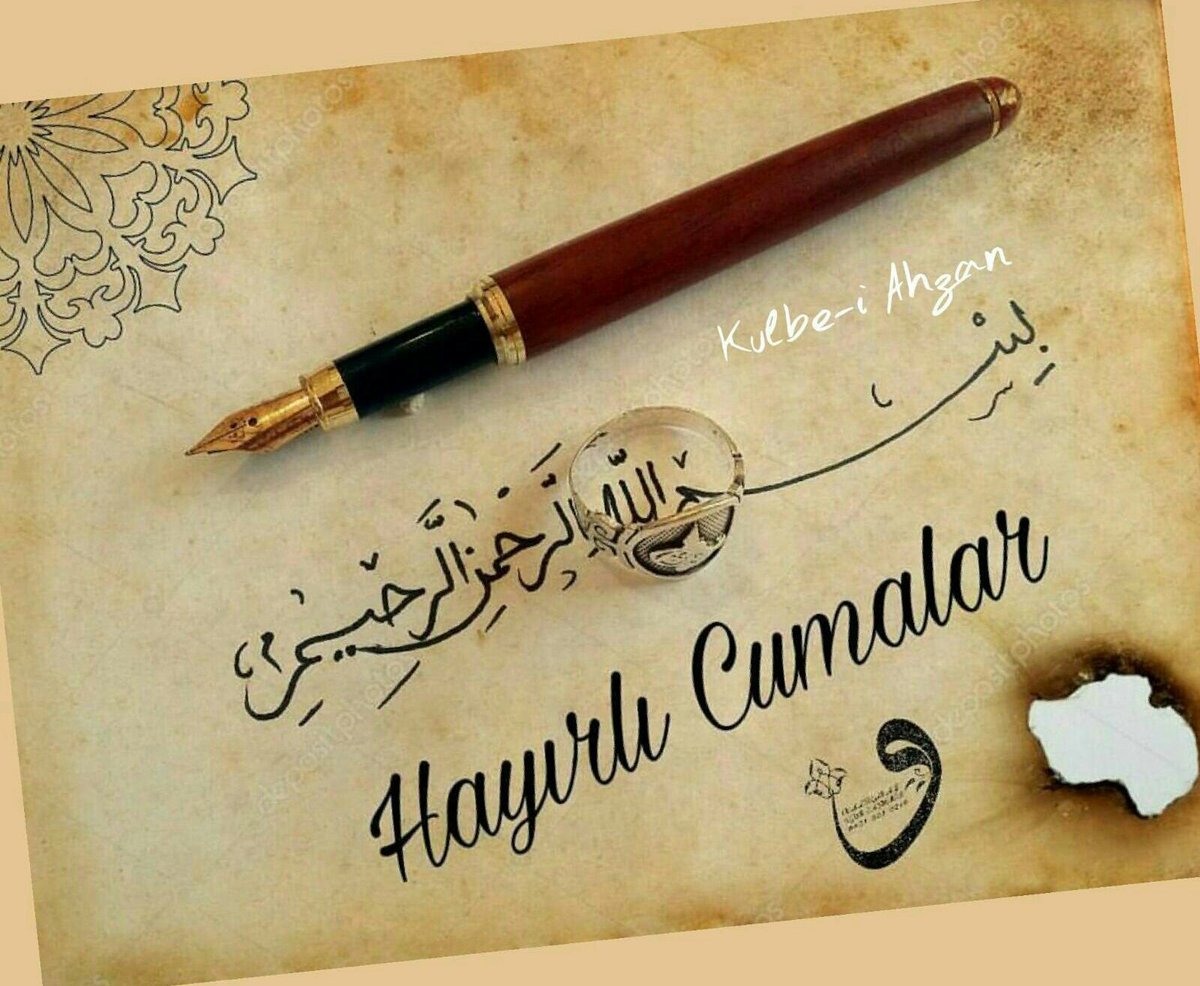 Kulbe-i Ahzan
بِسْمِ اللّٰهِ الرَّحْمٰنِ الرَّحِيمِ
Hayırlı Cumalar
و